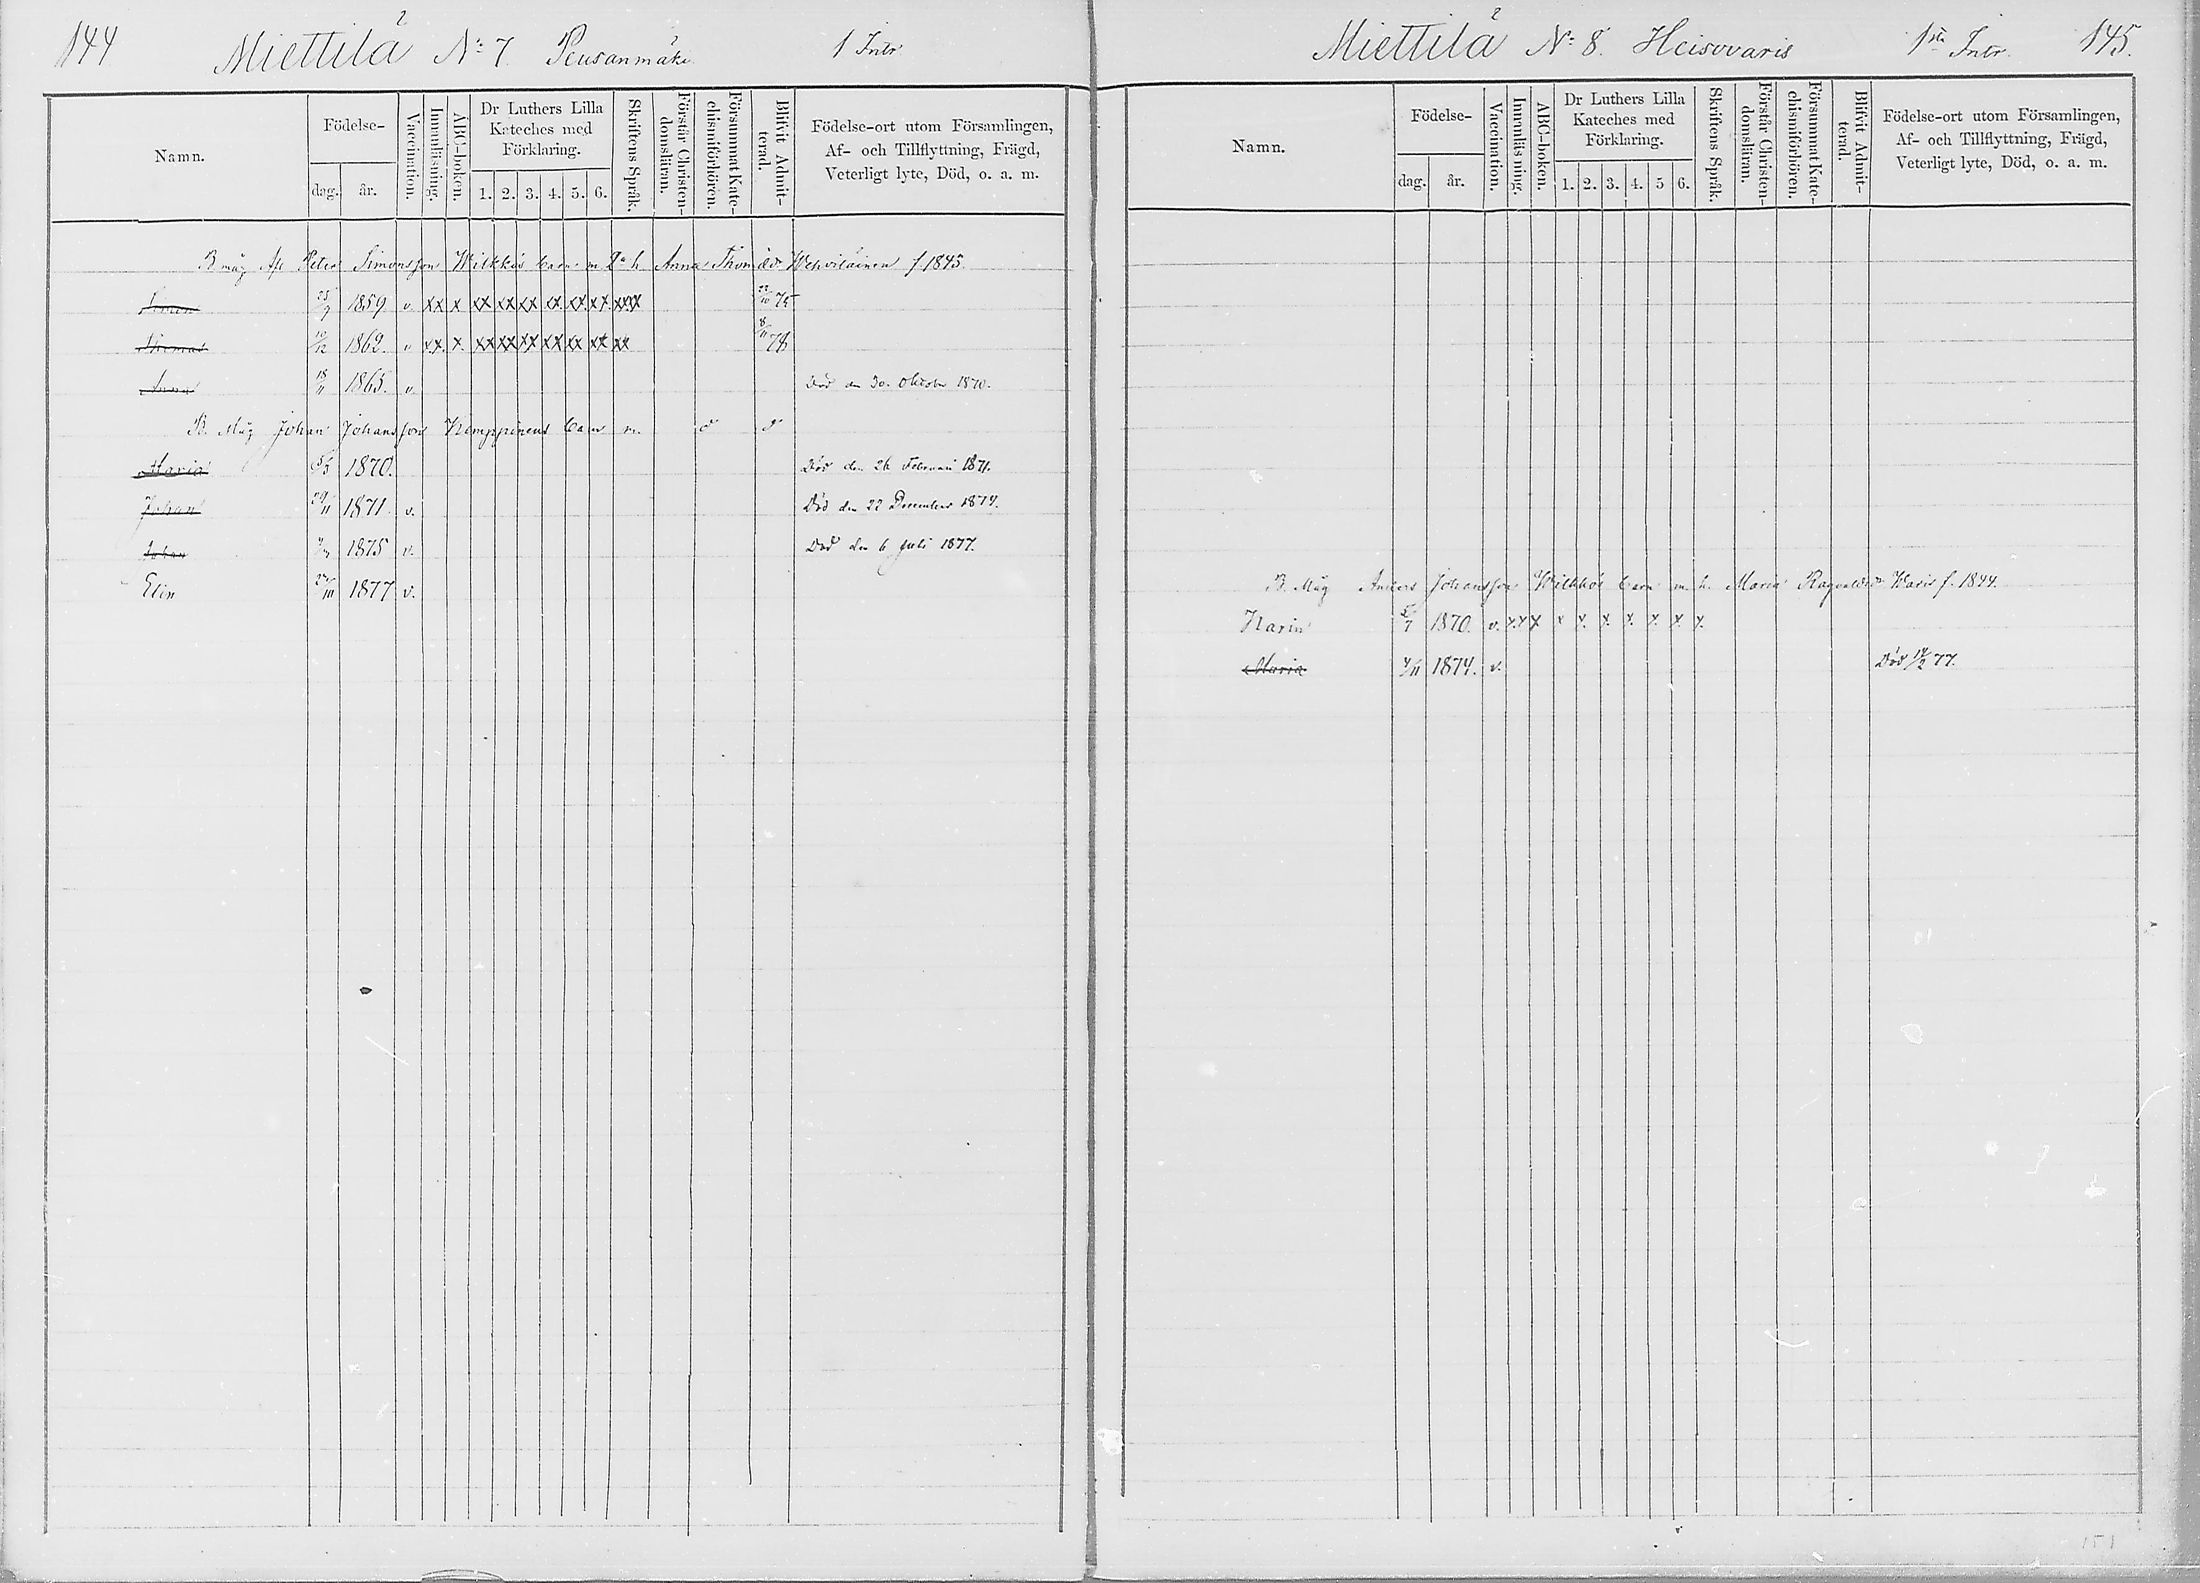 144 Miettilä No 7. Peusanmäki 1 Intr.
Namn. Födelse- dag. år. Vaccination. Innanläsning. ABC-boken. Dr Luthers Lilla Kateches med Förklaring. 1. 2. 3. 4. 5. 6. Skriftens Språk. Förstår Christendomsläran. Försummat Katechismiförhören. Blifvit Admitterad. Födelse-ort utom Församlingen, Af- och Tillflyttning, Frägd, Veterligt lyte, Död, o. a. m.
B. måg Afl. Petter Simonsson Wilkkis barn m. 2a h. Anna Thomæd. Wehviläinen f. 1845.
Simon 25/7 1859 v. xx x xx xx xx xx xx xx xxxx 22/10 75
Thomas 10/12 1862. v xx. x. xx xx xx xx xx xx xx 8/11 78
Anna 18/11 1865. v. Död den 30. Oktober 1870.
B. Måg Johan Johansson Kemppinens barn m. d:o d:o
Maria 1870. Död den 26 Februari 1871.
Johan 29/11 1871 v. Död den 22 December 1874.
Johan 1875 v. Död den 6 Juli 1877.
Elin 1877 v.
Miettilä No 8. Heisovaris 1sta Intr. 145.
Namn. Födelse- dag. år. Vaccination. Innanläsning. ABC-boken. Dr Luthers Lilla Kateches med Förklaring. 1. 2. 3. 4. 5 6. Skriftens Språk. Förstår Christendomsläran. Försummat Katechismiförhören. Blifvit Admitterad. Födelse-ort utom Församlingen, Af- och Tillflyttning, Frägd, Veterligt lyte, Död, o. a. m.
B. Måg Anders Johansson Wilkkis barn m. h. Maria Ragvaldsdr Waris f. 1844.
Karin 5/7 1870. v. x.x x x x. x. x. x. x. x.
Maria 4/11 1874. v. Död 14/2 77.
151